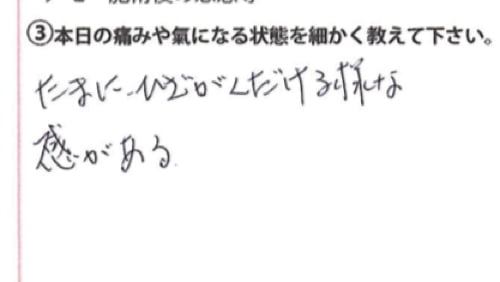 ③本日の痛みや氣になる状態を細かく教えて下さい。
たまに、ひざがくだける様な
感がある